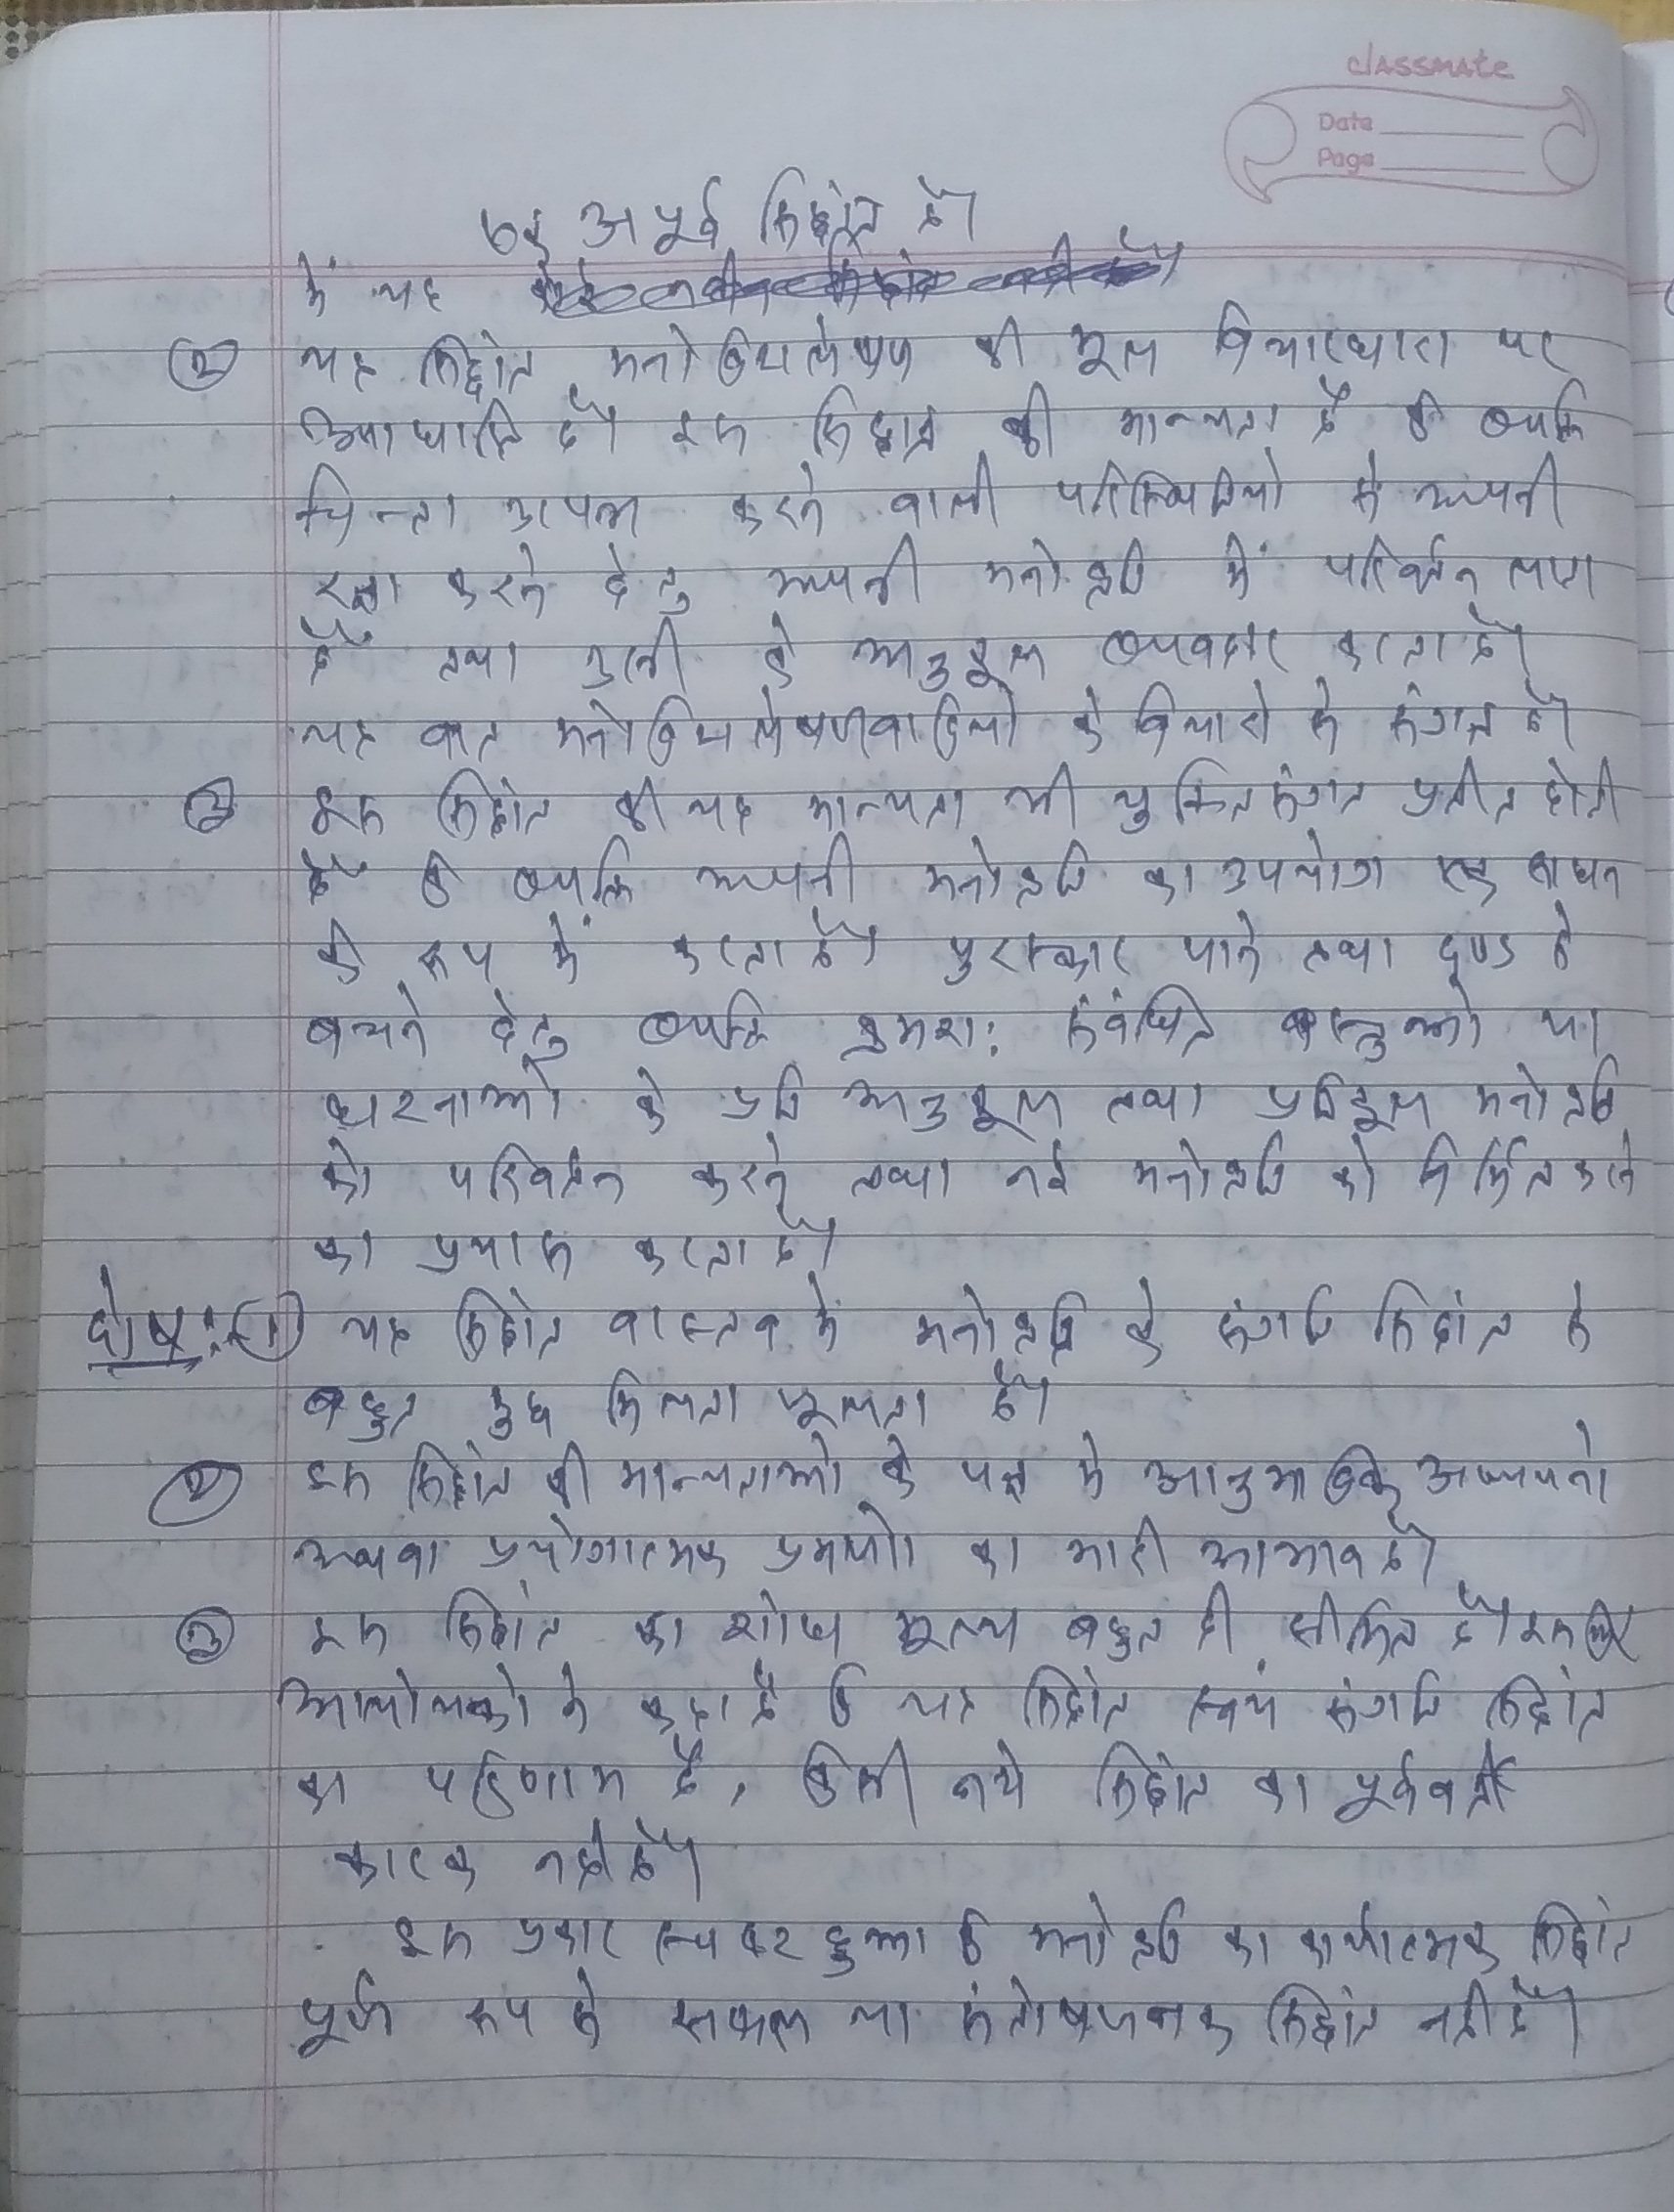 classmate
Date
Page
एक अपूर्व सिद्धांत है।
में यह
② यह सिद्धांत मनोविश्लेषण की मूल विचारधारा पर
आधारित है। इस सिद्धांत की मान्यता है कि व्यक्ति
चिन्ता उत्पन्न करने वाली परिस्थितियो से अपनी
रक्षा करने हेतु अपनी मनोवृत्ति में परिवर्तन लाता
है तथा उसी के अनुकूल व्यवहार करता है।
यह बात मनोविश्लेषणवादियो के विचारो से संगत है।
③ इस सिद्धांत की यह मान्यता भी युक्तिसंगत प्रतीत होती
है कि व्यक्ति अपनी मनोवृत्ति का उपयोग एक साधन
के रूप में करता है। पुरस्कार पाने तथा दण्ड से
बचने हेतु व्यक्ति क्रमश: संबंधित वस्तुओ या
घटनाओ के प्रति अनुकूल तथा प्रतिकूल मनोवृत्ति
को परिवर्तन करने तथा नई मनोवृत्ति को निर्मित करने
का प्रयास करता है।
दोष:- ① यह सिद्धांत वास्तव में मनोवृत्ति के संगति सिद्धांत से
बहुत कुछ मिलता जूलता है।
② इस सिद्धांत की मान्यताओ के पक्ष मे आनुभाविक अध्ययनो
अथवा प्रयोगात्मक प्रमाणो का भारी आभाव है।
③ इस सिद्धांत का शोध मूल्य बहुत ही सीमित है। इसलिए
आलोचको ने कहा है कि यह सिद्धांत स्वयं संगति सिद्धांत
का परिणाम है, किसी नये सिद्धांत का पूर्ववर्ती
कारक नही है।
इस प्रकार स्पष्ट हुआ कि मनोवृत्ति का कार्यात्मक सिद्धांत
पूर्ण रूप से सफल या संतोषजनक सिद्धांत नही है।